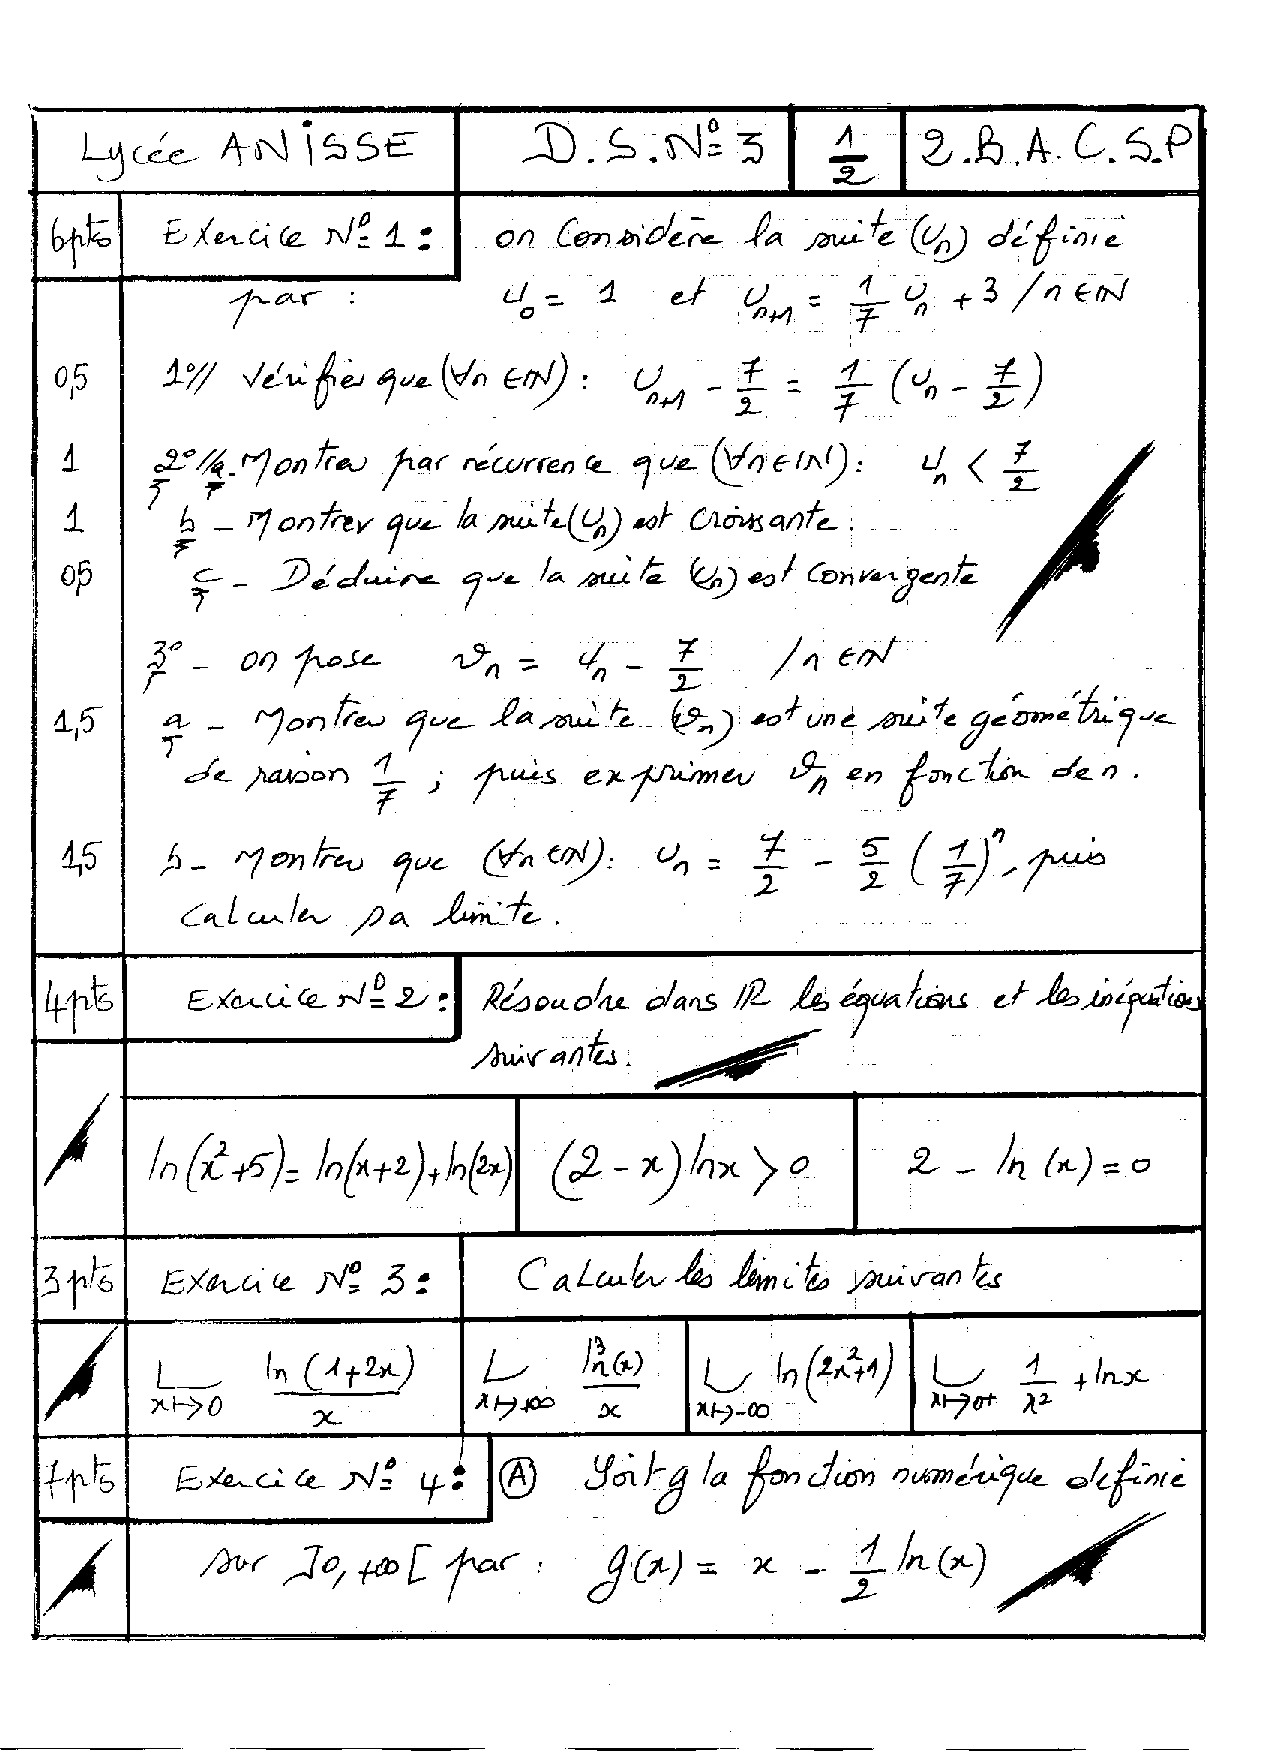 Lycée ANISSE D.S.N°3 1/2 2.B.A.C.S.P
6pts Exercice N°1: on Considère la suite (Un) définie
par : U0 = 1 et Un+1 = 1/7 Un + 3 / n ∈ IN
0,5 1°// Vérifier que (∀n ∈ IN) : Un+1 - 7/2 = 1/7 (Un - 7/2)
1 2°//a - Montrer par récurrence que (∀n ∈ IN) : Un < 7/2
1 b - Montrer que la suite (Un) est Croissante.
0,5 c - Déduire que la suite (Un) est Convergente
3° - on pose vn = Un - 7/2 / n ∈ IN
1,5 a - Montrer que la suite (vn) est une suite géométrique
de raison 1/7 ; puis exprimer vn en fonction de n.
1,5 b - Montrer que (∀n ∈ IN) : Un = 7/2 - 5/2 (1/7)^n, puis
Calculer sa limite.
4pts Exercice N°2: Résoudre dans IR les équations et les inéquations
suivantes:
ln(x²+5) = ln(x+2) + ln(2x) (2 - x) ln x > 0 2 - ln(x) = 0
3pts Exercice N°3: Calculer les limites suivantes
L x↦0 ln(1+2x)/x L x↦+∞ ln³(x)/x L x↦-∞ ln(2x²+1) L x↦0+ 1/x² + ln x
7pts Exercice N°4: (A) Soit g la fonction numérique définie
sur ]0, +∞[ par : g(x) = x - 1/2 ln(x)